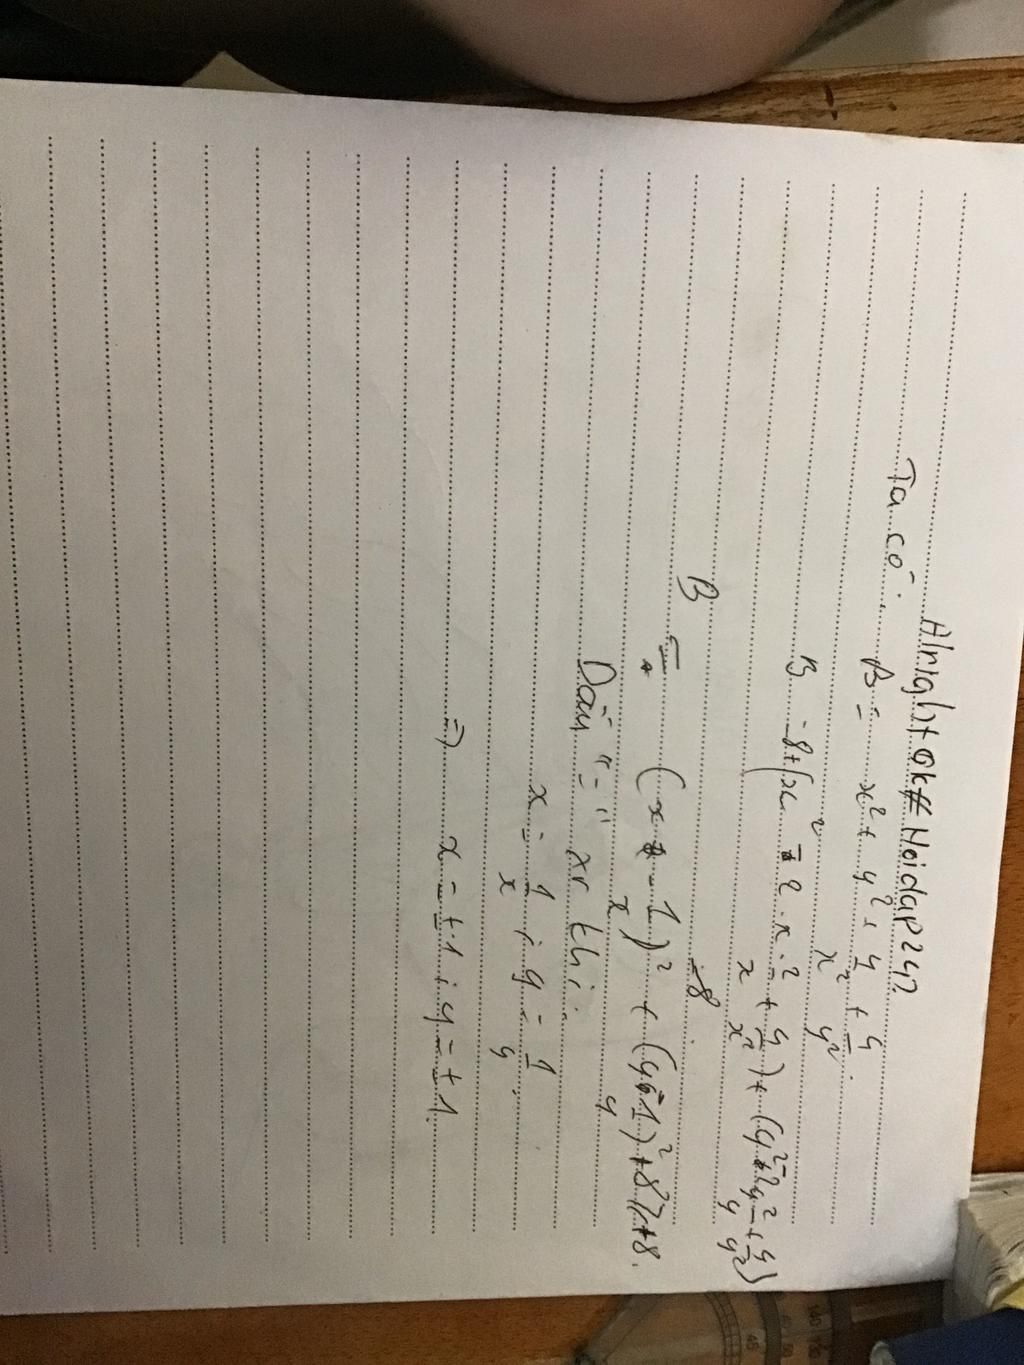 Alright ok # Hoidap247
Ta có: B = x² + y² + 4/x² + 4/y².
B = 8 + (x² - 2.x.2/x + 4/x²) + (y² - 2y 2/y + 4/y²)
B -8
= (x - 1/x)² + (y - 1/y)² + 8 ≥ +8.
Dấu "=" xr thi:
x = 1/x ; y = 1/y.
=> x = ±1 ; y = ±1.